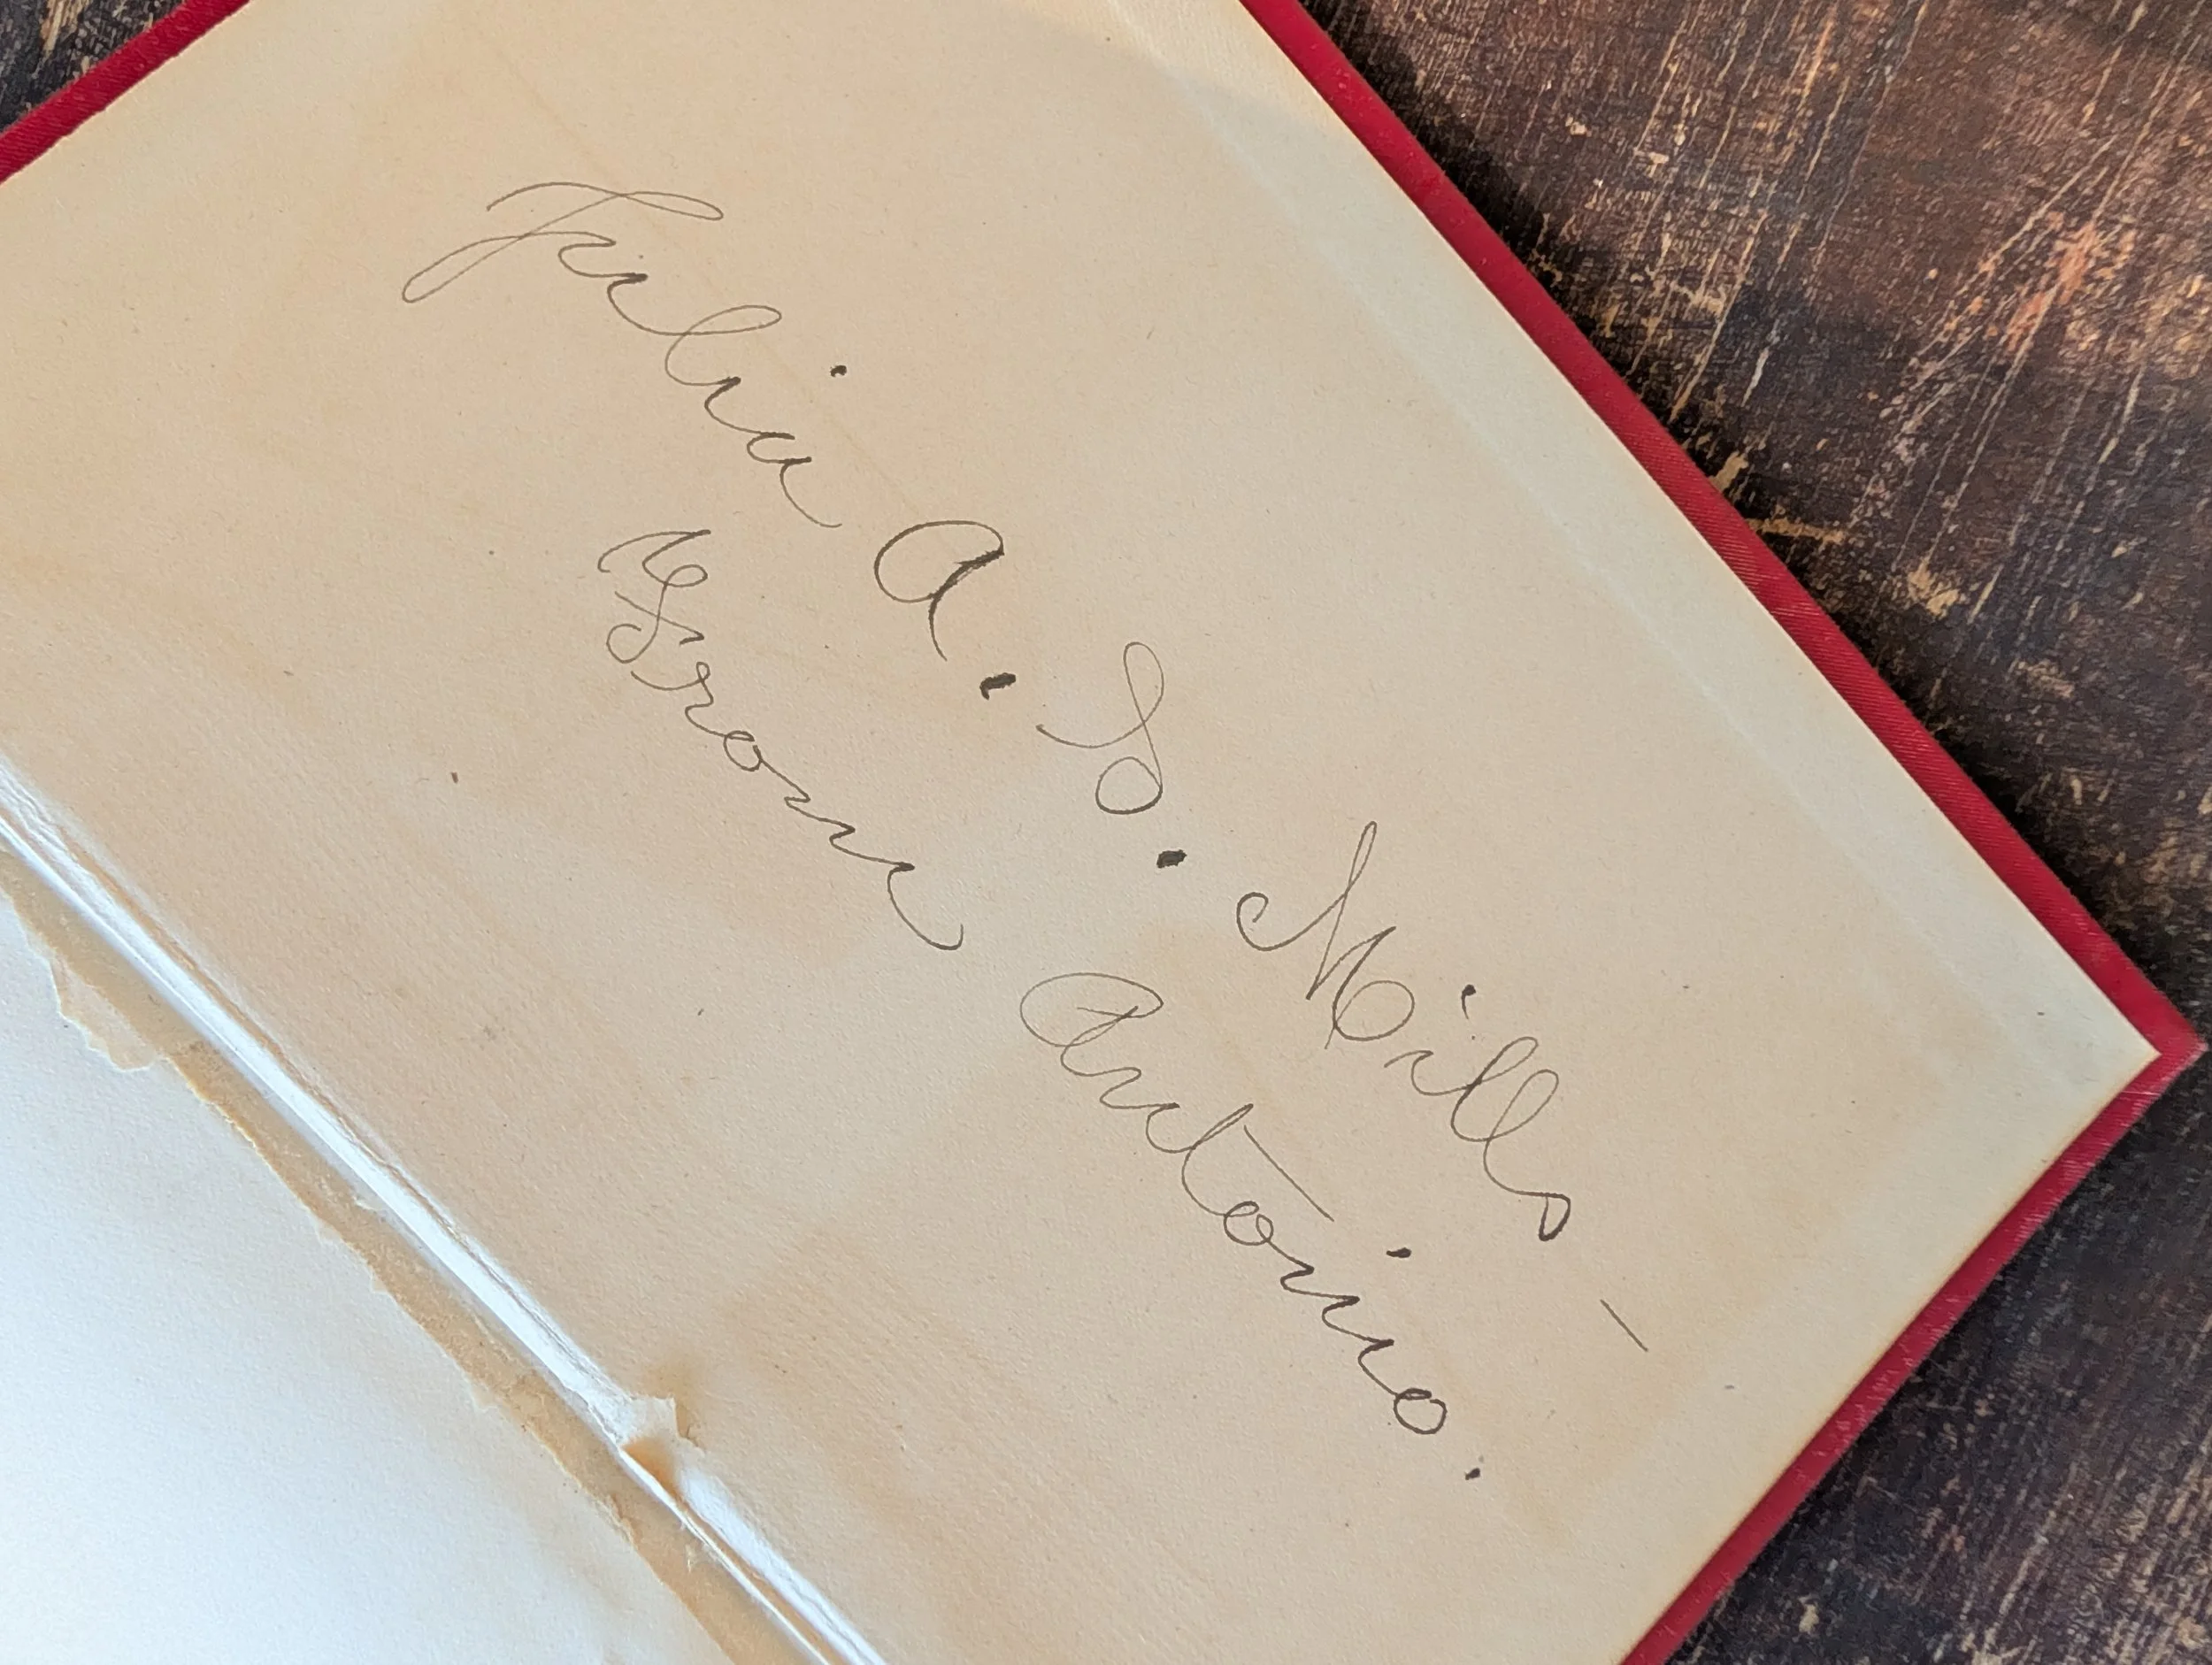 Julia A. S. Mills –
From Antoinio.